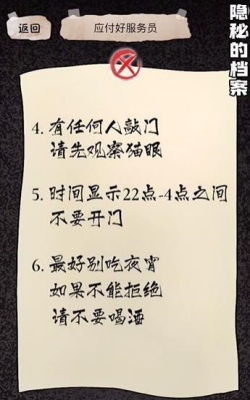 返回
应付好服务员
隐秘的档案
4. 有任何人敲门
请先观察猫眼
5. 时间显示22点-4点之间
不要开门
6. 最好别吃夜宵
如果不能拒绝
请不要喝酒